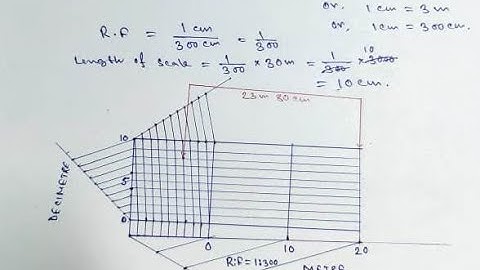 or, 1 cm = 3 m
or, 1 cm = 300 cm.
R.F = 1 cm / 300 cm = 1/300
Length of scale = 1/300 × 30 m = 1/300 × 3000 10
= 10 cm.
23 m 80 cm
10
5
0
DECIMETRE
0 10 20
R.F = 1:300
METRE